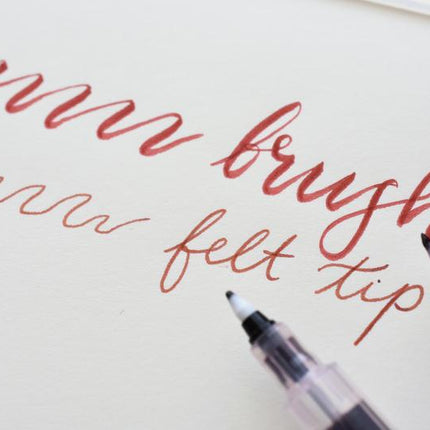 brush
felt tip